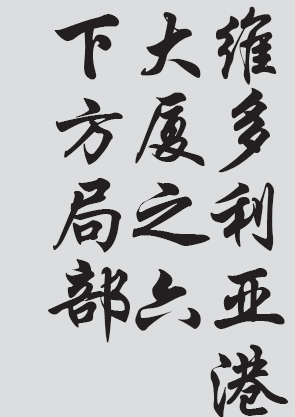 维多利亚港
大厦之六
下方局部